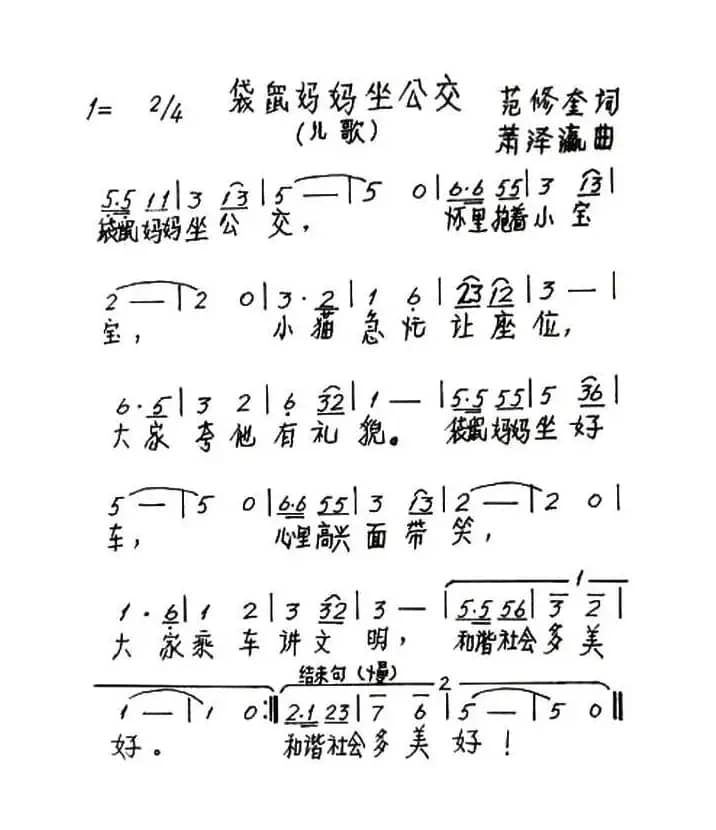 1= 2/4 袋鼠妈妈坐公交 范修奎词
(儿歌) 萧泽瀛曲
5·5 11|3 13|5 —|5 0|6·6 55|3 13|
袋鼠妈妈坐公交, 怀里抱着小宝
2 —|2 0|3·2|1 6|23 12|3 —|
宝, 小猫急忙让座位,
6·5|3 2|6 32|1 —|5·5 55|5 36|
大家夸他有礼貌。 袋鼠妈妈坐好
5 —|5 0|6·6 55|3 13|2 —|2 0|
车, 心里高兴面带笑,
1
1·6|1 2|3 32|3 —|5·5 56|3 2|
大家乘车讲文明, 和谐社会多美
结束句(慢) 2
1 —|1 0:‖2·1 23|7 6|5 —|5 0‖
好。 和谐社会多美好!